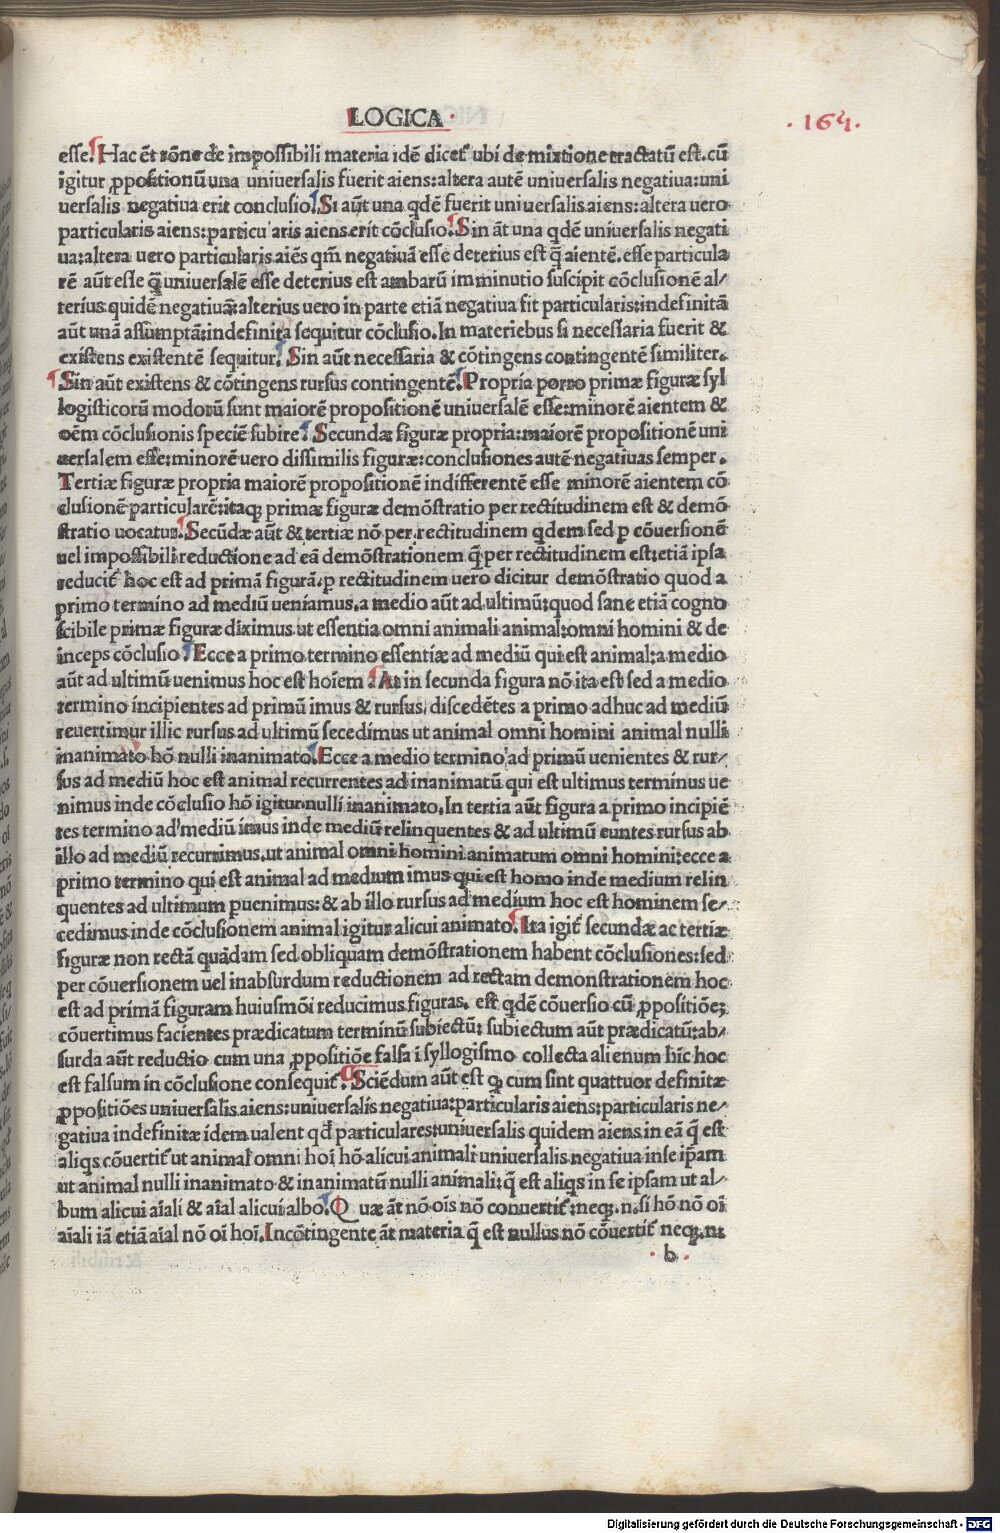 LOGICA
.164.
esse. Hac ēt rōne de impossibili materia idē dicet̄ ubi de mixtione tractatū est. cū
igitur ꝓpositionū una uniuersalis fuerit aiens: altera autē uniuersalis negatiua: uni
uersalis negatiua erit conclusio. Si aūt una qdē fuerit uniuersalis aiens: altera uero
particularis aiens: particu aris aiens erit cōclusio. Sin āt una qdē uniuersalis negati
ua: altera uero particularis aiēs qm̄ negatiuā esse deterius est q̄ aientē. esse particula
rē aūt esse q̄ uniuersalē esse deterius est ambarū imminutio suscipit cōclusionē al/
terius quidē negatiuā: alterius uero in parte etiā negatiua fit particularis: indefinitā
aūt unā assumptā: indefinita sequitur cōclusio. In materiebus si necessaria fuerit &
existens existentē sequitur. Sin aūt necessaria & cōtingens contingentē similiter.
Sin aūt existens & cōtingens rursus contingentē. Propria porro primæ figuræ syl
logisticorū modorū sunt maiorē propositionē uniuersalē esse: minorē aientem &
oēm cōclusionis speciē subire. Secundæ figuræ propria: maiorē propositionē uni
uersalem esse: minorē uero dissimilis figuræ: conclusiones autē negatiuas semper.
Tertiæ figuræ propria maiorē propositionē indifferentē esse minorē aientem cō
clusionē particularē: itaqꝫ primæ figuræ demōstratio per rectitudinem est & demō
stratio uocatur. Secūdæ aūt & tertiæ nō per rectitudinem qdem sed p cōuersionē
uel impossibili reductione ad eā demōstrationem q̄ per rectitudinem est: etiā ipsa
reducit̄ hoc est ad primā figurā. p rectitudinem uero dicitur demōstratio quod a
primo termino ad mediū ueniamus. a medio aūt ad ultimū: quod sane etiā cogno
scibile primæ figuræ diximus ut essentia omni animali animal: omni homini & de
inceps cōclusio. Ecce a primo termino essentiæ ad mediū qui est animal: a medio
aūt ad ultimū uenimus hoc est hoīem. At in secunda figura nō ita est sed a medio
termino incipientes ad primū imus & rursus. discedētes a primo adhuc ad mediū
reuertimur illic rursus ad ultimū secedimus ut animal omni homini animal nulli
inanimato hō nulli inanimato. Ecce a medio termino ad primū uenientes & rur/
sus ad mediū hoc est animal recurrentes ad inanimatū qui est ultimus terminus ue
nimus inde cōclusio hō igitur nulli inanimato. In tertia aūt figura a primo incipiē
tes termino ad mediū imus inde mediū relinquentes & ad ultimū euntes rursus ab
illo ad mediū recurrimus. ut animal omni homini animatum omni homini: ecce a
primo termino qui est animal ad medium imus qui est homo inde medium relin
quentes ad ultimum puenimus: & ab illo rursus ad medium hoc est hominem se/
cedimus inde cōclusionem animal igitur alicui animato. Ita igit̄ secundæ ac tertiæ
figuræ non rectā quādam sed obliquam demōstrationem habent cōclusiones: sed
per cōuersionem uel inabsurdum reductionem ad rectam demonstrationem hoc
est ad primā figuram huiusmōi reducimus figuras. est qdē cōuersio cū ꝓpositiōe;
cōuertimus facientes prædicatum terminū subiectū: subiectum aūt prædicatū: ab/
surda aūt reductio cum una ꝓpositiōe falsa ī syllogismo collecta alienum hīc hoc
est falsum in cōclusione consequit̄. Sciēdum aūt est qꝫ cum sint quattuor definitæ
ꝓpositiōes uniuersalis aiens: uniuersalis negatiua: particularis aiens: particularis ne/
gatiua indefinitæ idem ualent qd̄ particulares: uniuersalis quidem aiens in eā q̄ est
aliqs cōuertit̄ ut animal omni hoi hō alicui animali uniuersalis negatiua inse ip̄am
ut animal nulli inanimato & inanimatū nulli animali: q̄ est aliqs in se ipsam ut al/
bum alicui aīali & aīal alicui albo. Quæ āt nō oīs nō conuertit̄: neqꝫ. n. si hō nō oī
aīali iā etiā aīal nō oī hoī. Incōtingente āt materia q̄ est nullus nō cōuertit̄ neqꝫ. n.
. b .
Digitalisierung gefördert durch die Deutsche Forschungsgemeinschaft - DFG